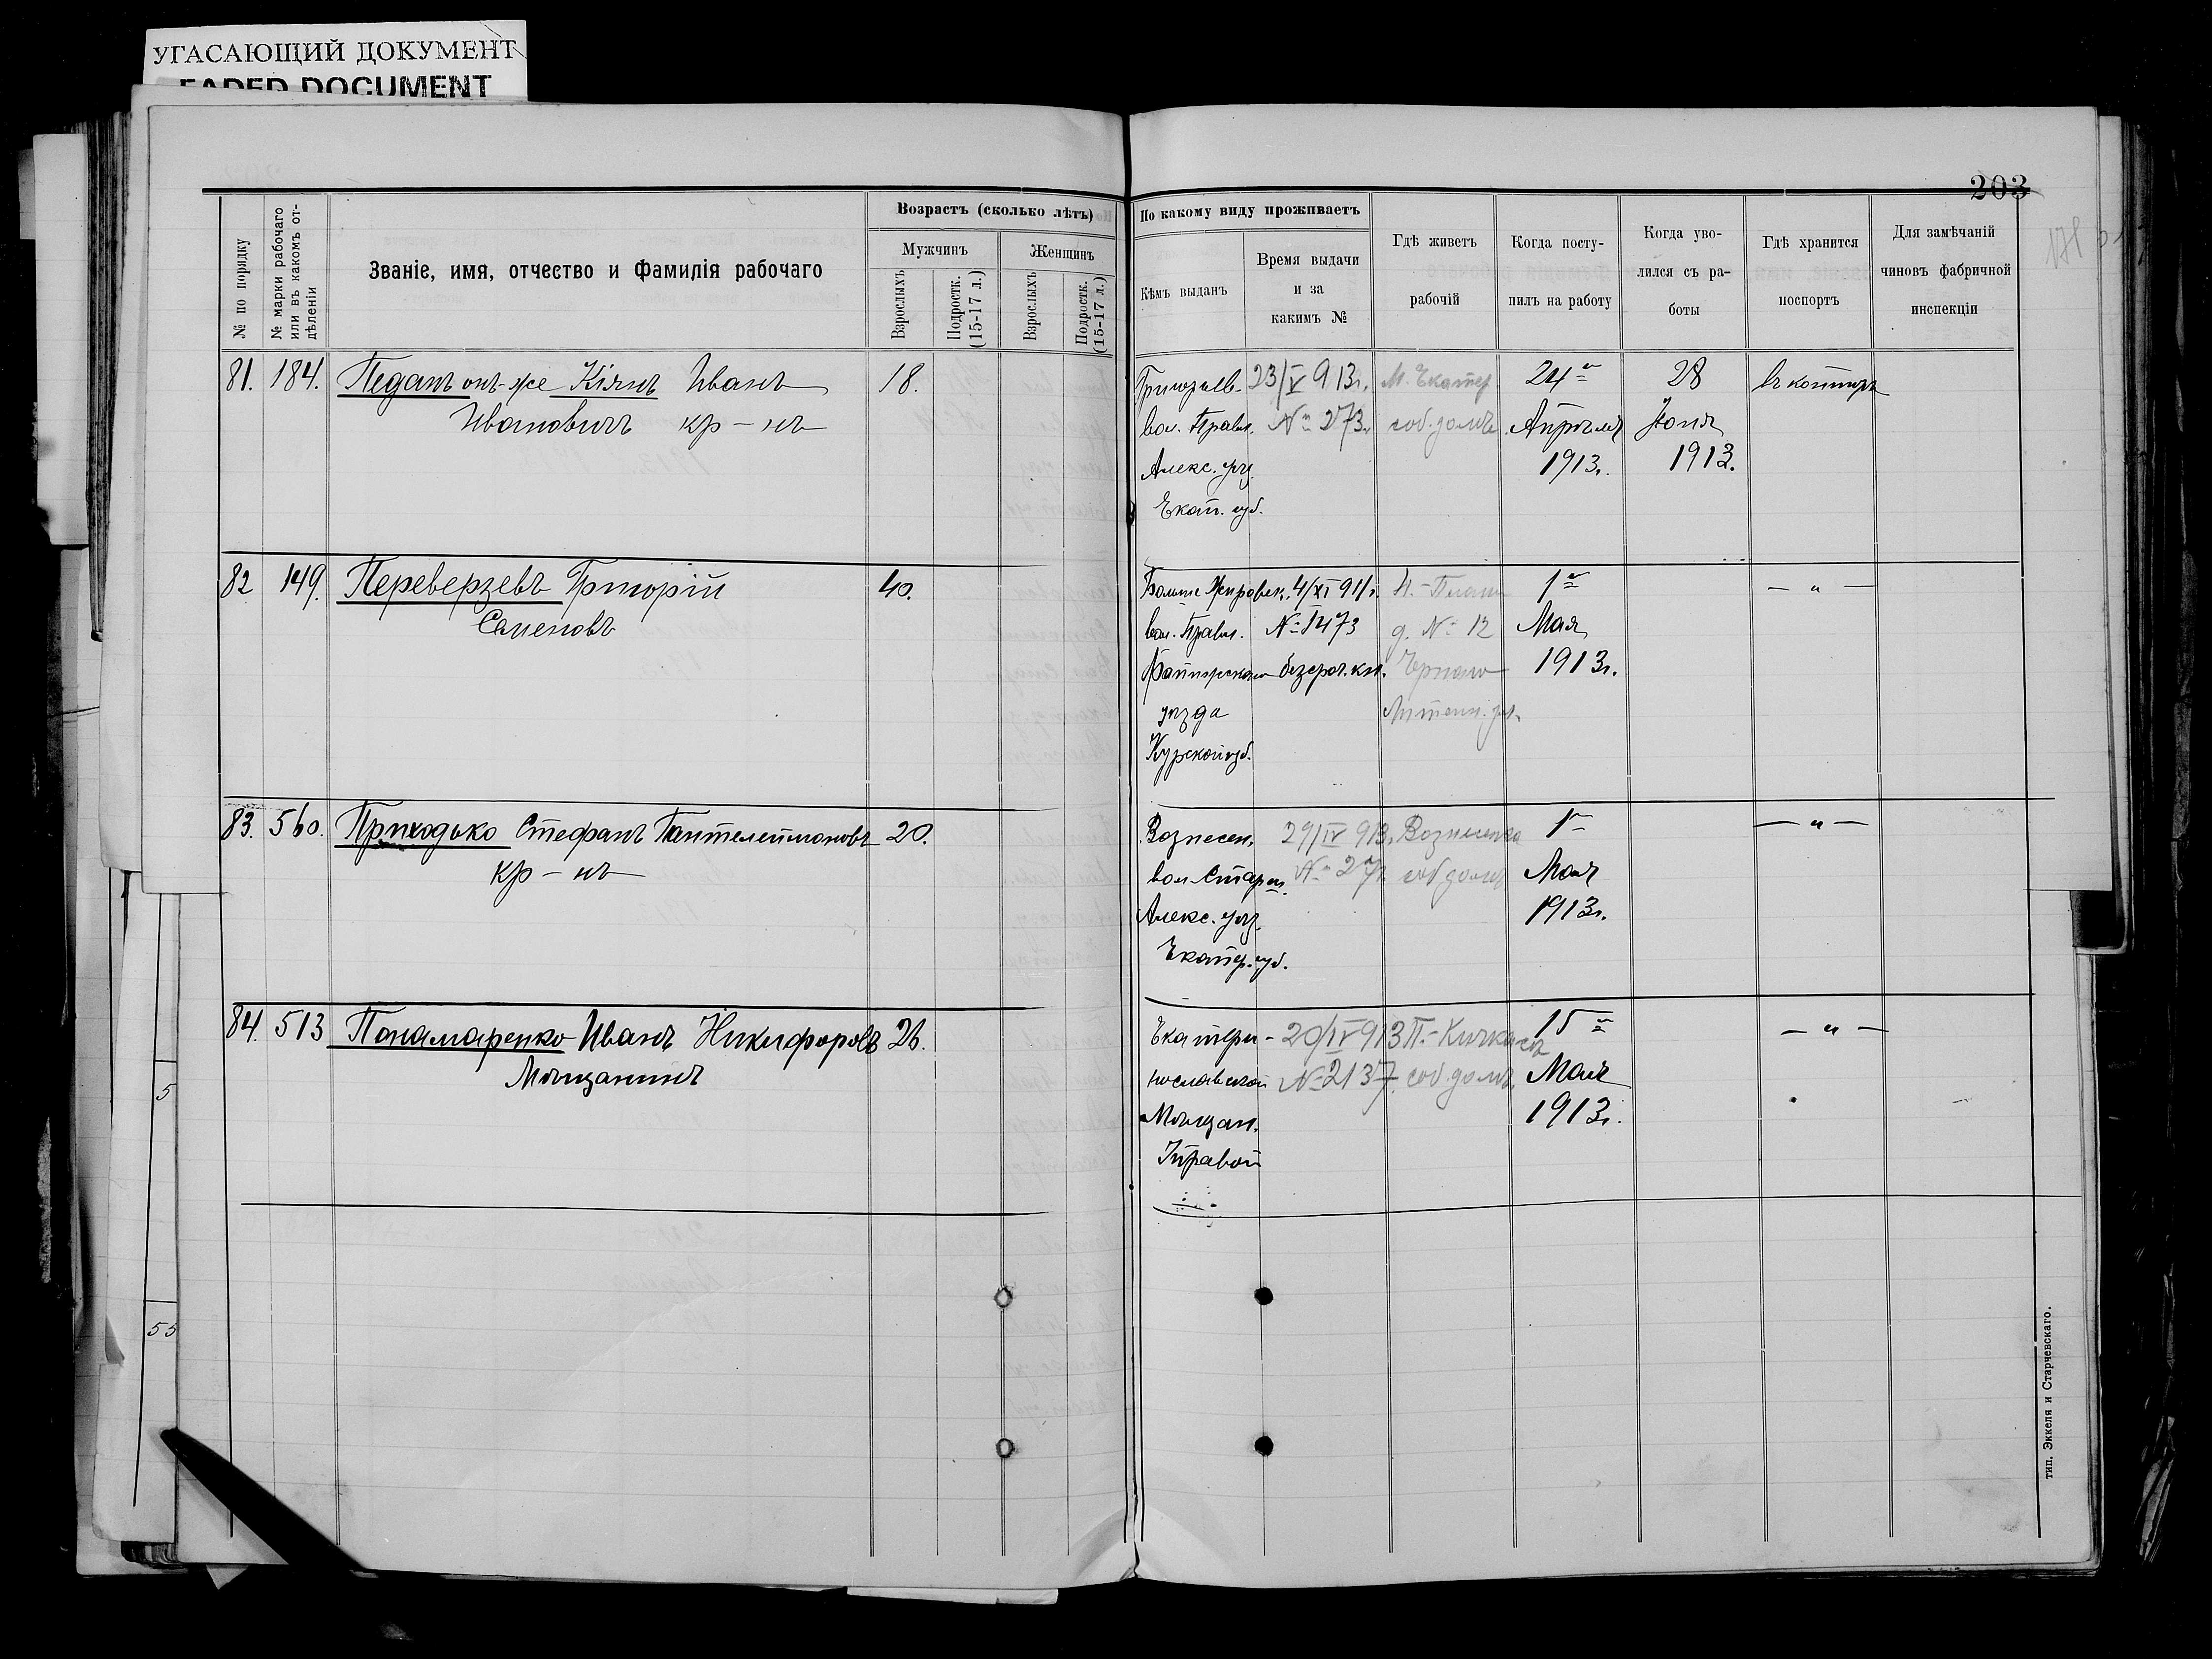 УГАСАЮЩИЙ ДОКУМЕНТ
FADED DOCUMENT
203
№ по порядку
№ марки рабочаго
или въ какомъ от-
дѣленіи
Званіе, имя, отчество и Фамилія рабочаго
Возрастъ (сколько лѣтъ)
Мужчинъ
Женщинъ
Взрослыхъ
Подростк.
(15-17 л.)
Взрослыхъ
Подростк.
(15-17 л.)
По какому виду проживаетъ
Кѣмъ выданъ
Время выдачи
и за
какимъ №
Гдѣ живетъ
рабочій
Когда посту-
пилъ на работу
Когда уво-
лился съ ра-
боты
Гдѣ хранится
поспортъ
Для замѣчаній
чиновъ фабричной
инспекціи
81. 184. Педанъ онъ-же Кіянъ Иванъ 18.
Ивановичъ кр-нъ
Григорьев. 23/IV 913г. М. Екатер. 24го 28 въ конторѣ
вол. Правл. № 273. соб. домъ Апрѣля Іюня
Алекс. уѣз. 1913г. 1913.
Екат. губ.
82 149. Переверзевъ Григорій 40.
Семеновъ
4/XI 911г. 1го — " —
вол. Правл. № 1473 д. № 12 Мая
безсроч. кн. 1913г.
уѣзда
Курской губ.
83. 560. Приходько Стефанъ Пантелеймоновъ 20.
кр-нъ
Вознесен. 29/IV 913. Вознесенка 1го — " —
вол. Старш. соб. домъ Мая
Алекс. уѣз. 1913г.
Екатер. губ.
84. 513 Понамаренко Иванъ Никифоровъ 26.
Мѣщанинъ
Екатери- 20/IV 913 П.-Кичкасъ 15го — " —
нославской № 2137. соб. домъ. Мая
Мѣщан. 1913г.
Управой
5
55
тип. Эккеля и Старчевскаго.